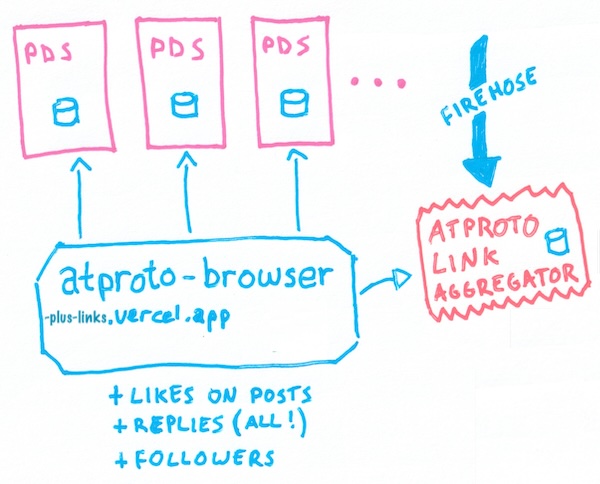 PDS
PDS
PDS
FIREHOSE
ATPROTO
LINK
AGGREGATOR
atproto-browser
-plus-links.vercel.app
+ LIKES ON POSTS
+ REPLIES (ALL!)
+ FOLLOWERS